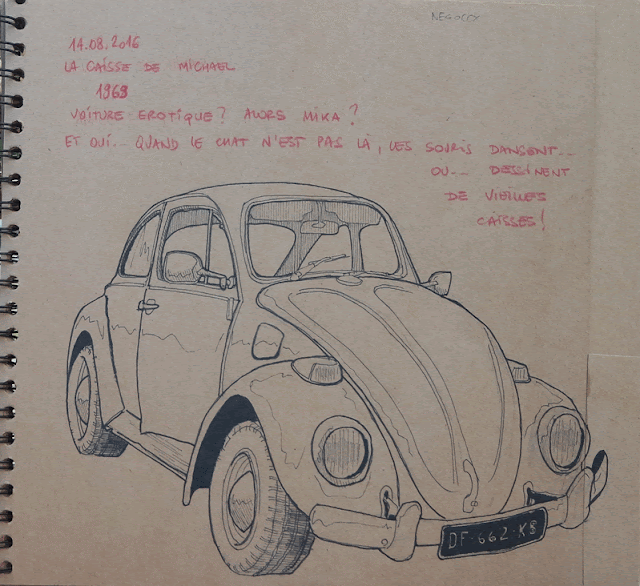 14.08.2016
LA CAISSE DE MICHAEL
1969
VOITURE EROTIQUE ? ALORS MIKA ?
ET OUI... QUAND LE CHAT N'EST PAS LÀ, LES SOURIS DANSENT...
OU... DESSINENT
DE VIEILLES
CAISSES !
DF-662-KS